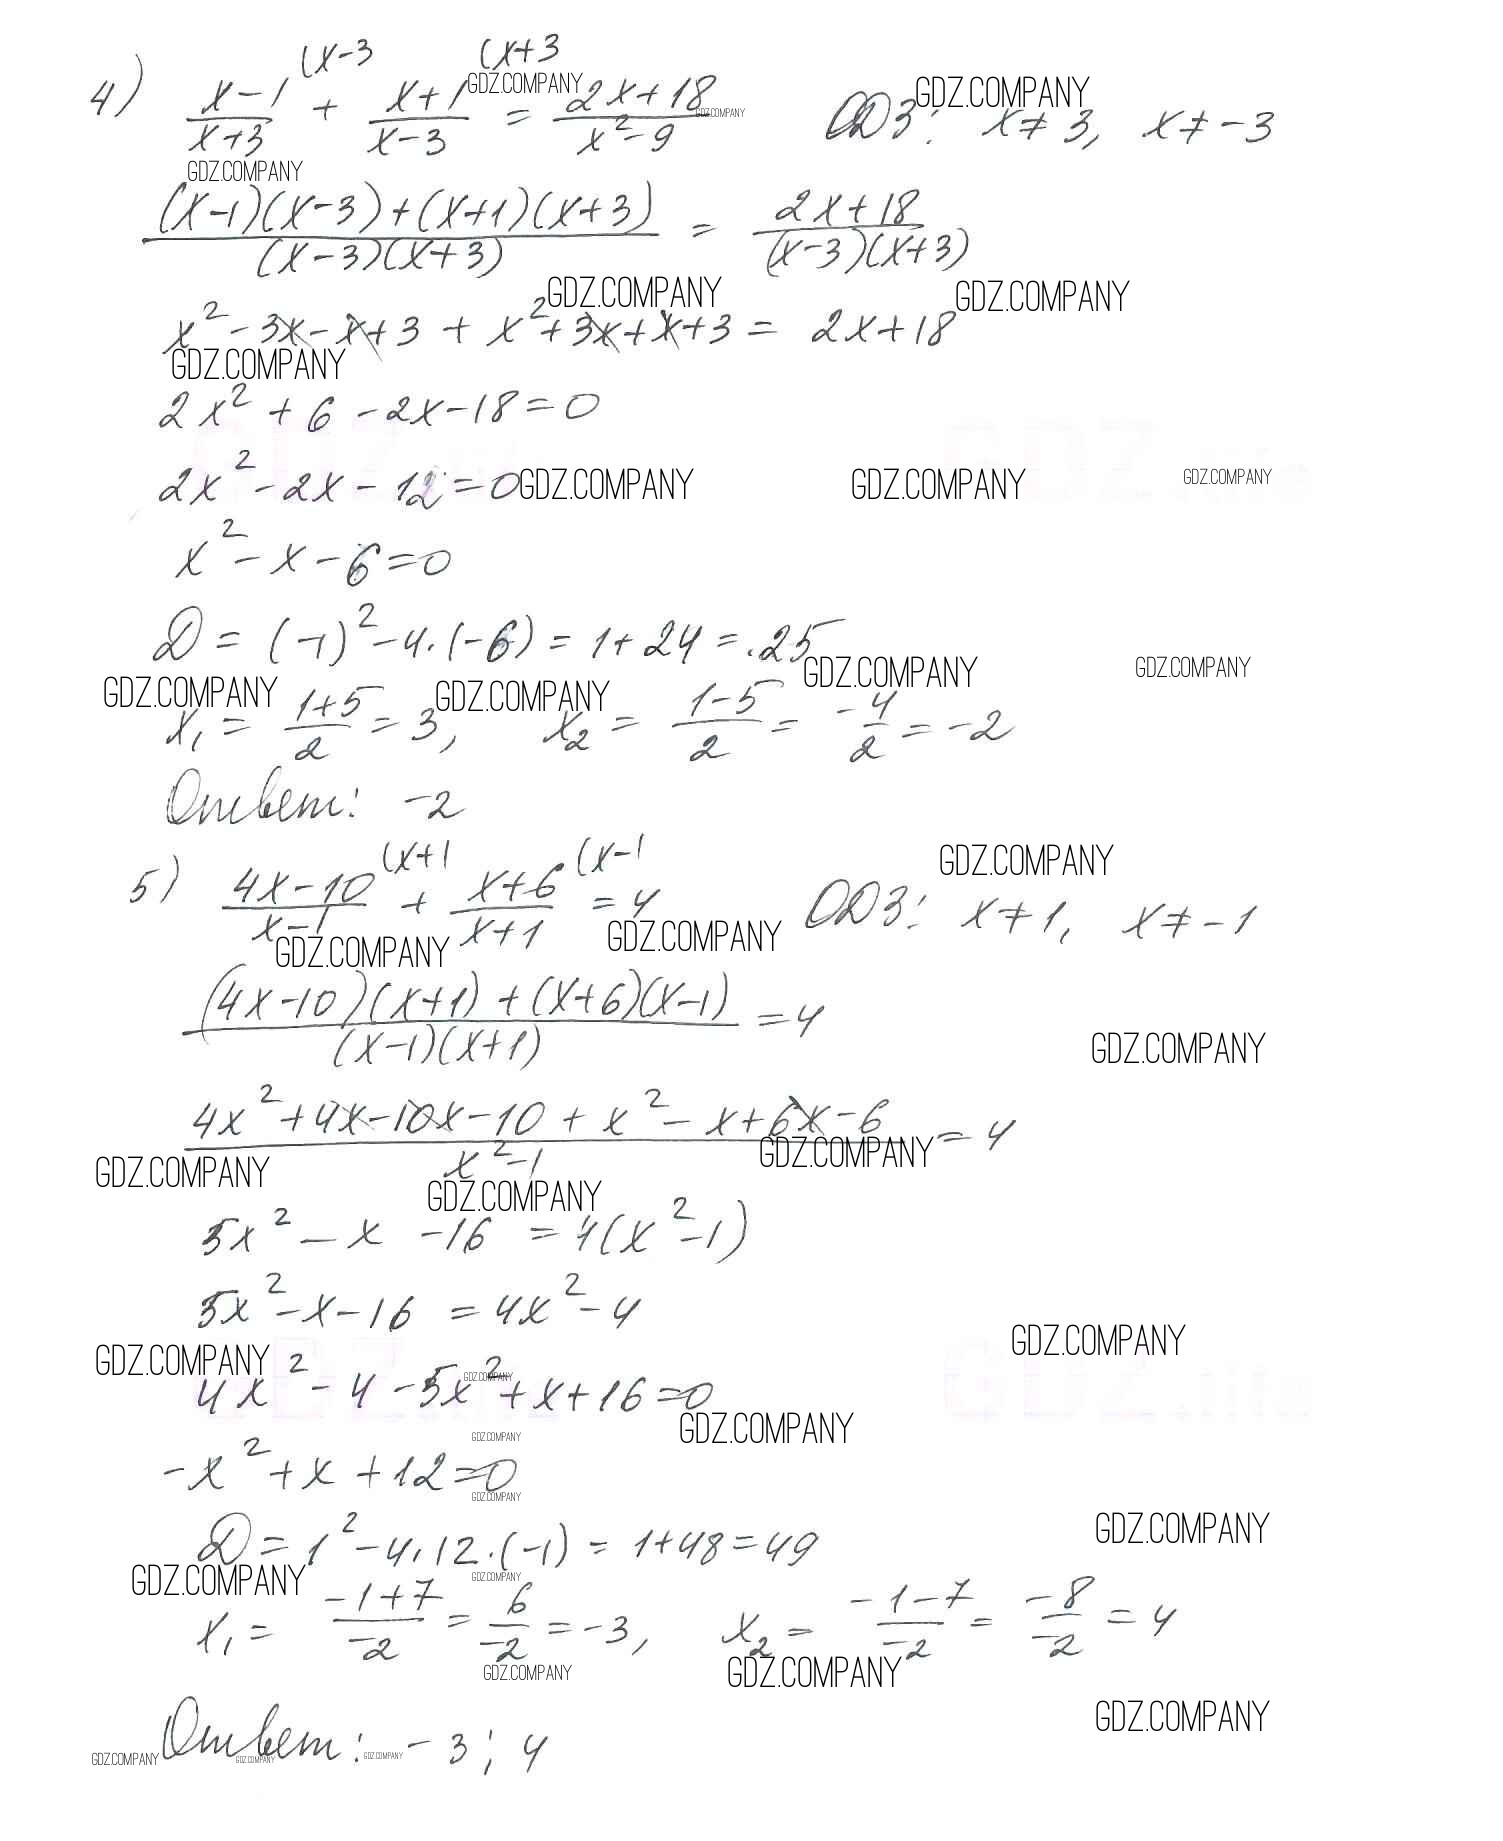 4) (x-1)/(x+3) (x-3 + (x+1)/(x-3) (x+3 = (2x+18)/(x²-9) ОДЗ: x≠3, x≠-3
GDZ.COMPANY GDZ.COMPANY GDZ.COMPANY
GDZ.COMPANY
((x-1)(x-3)+(x+1)(x+3))/((x-3)(x+3)) = (2x+18)/((x-3)(x+3))
GDZ.COMPANY GDZ.COMPANY
x²-3x-x+3+x²+3x+x+3=2x+18
GDZ.COMPANY
2x²+6-2x-18=0
2x²-2x-12=0 GDZ.COMPANY GDZ.COMPANY GDZ.COMPANY
x²-x-6=0
D=(-1)²-4·(-6)=1+24=25
GDZ.COMPANY GDZ.COMPANY
GDZ.COMPANY GDZ.COMPANY
x₁=(1+5)/2=3, x₂=(1-5)/2=-4/2=-2
Ответ: -2
5) (4x-10)/(x-1) (x+1 + (x+6)/(x+1) (x-1 =4 ОДЗ: x≠1, x≠-1
GDZ.COMPANY
GDZ.COMPANY GDZ.COMPANY
((4x-10)(x+1)+(x+6)(x-1))/((x-1)(x+1))=4
GDZ.COMPANY
(4x²+4x-10x-10+x²-x+6x-6)/(x²-1)=4
GDZ.COMPANY GDZ.COMPANY
GDZ.COMPANY
5x²-x-16=4(x²-1)
5x²-x-16=4x²-4
GDZ.COMPANY GDZ.COMPANY
4x²-4-5x²+x+16=0
GDZ.COMPANY
GDZ.COMPANY GDZ.COMPANY
-x²+x+12=0
GDZ.COMPANY
GDZ.COMPANY
D=1²-4·12·(-1)=1+48=49
GDZ.COMPANY GDZ.COMPANY
x₁=(-1+7)/-2=6/-2=-3, x₂=(-1-7)/-2=-8/-2=4
GDZ.COMPANY GDZ.COMPANY
GDZ.COMPANY
Ответ: -3; 4
GDZ.COMPANY GDZ.COMPANY GDZ.COMPANY